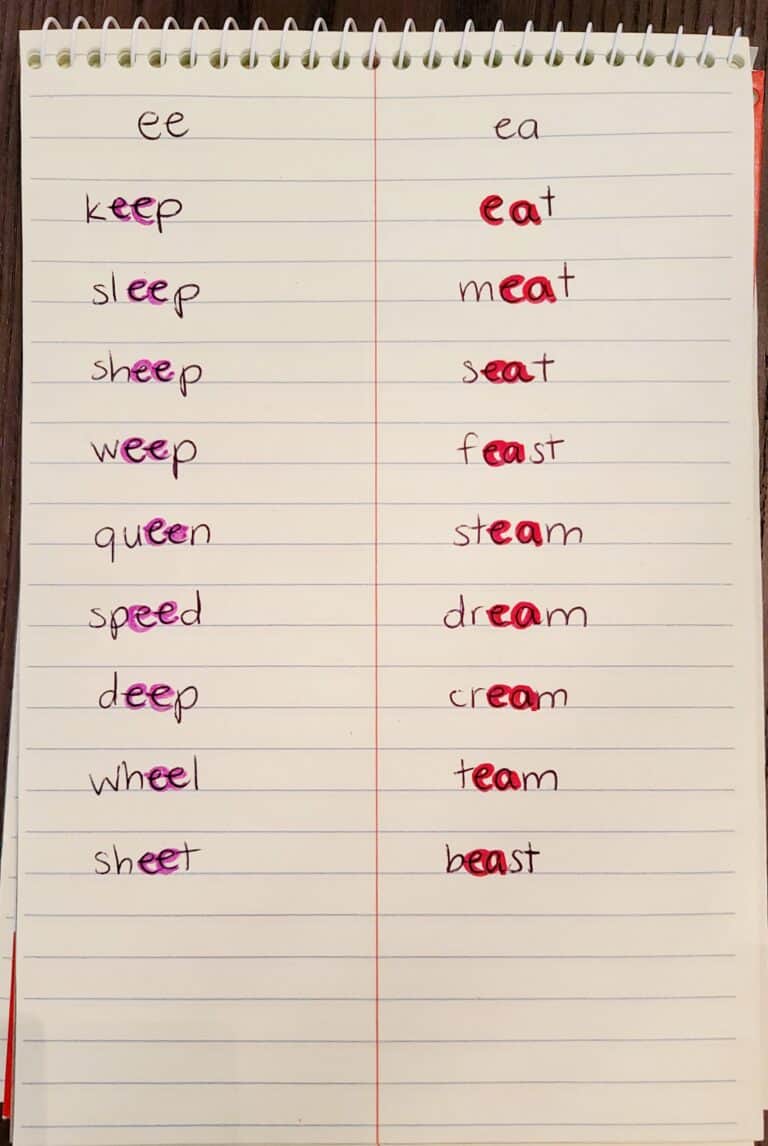 ee ea
keep eat
sleep meat
sheep seat
weep feast
queen steam
speed dream
deep cream
wheel team
sheet beast